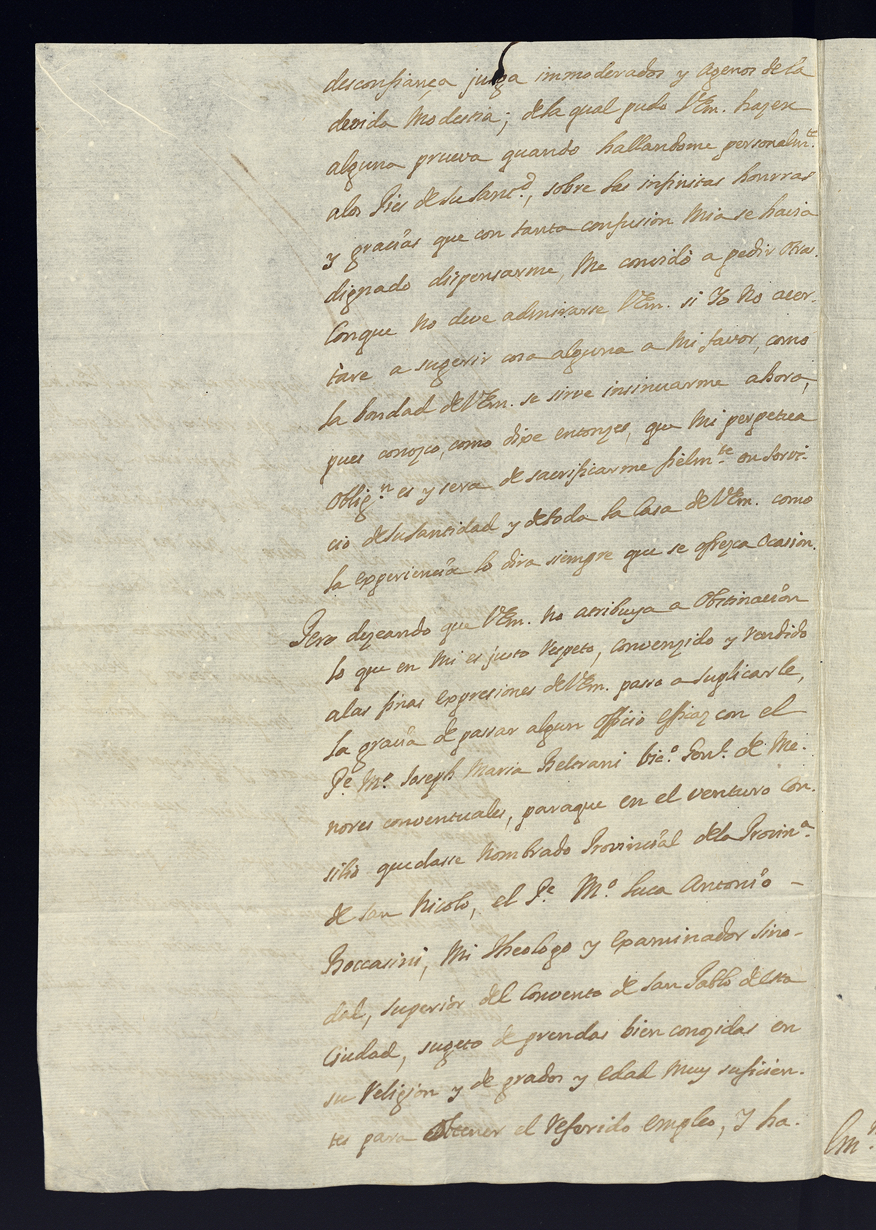 desconfiança juzga immoderados y agenos de la
devida Modestia; dela qual pudo VEm. hazer
alguna prueva quando hallandome personalm.te
alos Pies de su Sant.d, sobre las infinitas honrras
y gracias que con tanta confusion Mia se havia
dignado dispensarme, Me convidò a pedir otras.
Conque No deve admirarse VEm. si Yo No acer-
tare a sugerir cosa alguna a Mi favor, como
la bondad de VEm. se sirve insinuarme ahora,
pues conozco, como dixe entonzes, que Mi perpetua
Oblig.n es y sera de sacrificarme fielm.te en servi-
cio de su Santidad y de toda la Casa de VEm. como
la experiencia lo dira siempre que se ofrezca Ocasion.
Pero dezeando que VEm. No atribuya a Obstinacion
lo que en Mi es justo Respeto, Convenzido y Rendido
alas finas expresiones de VEm. passo a suplicarle,
la gracia de passar algun Officio efficaz con el
P.e M.o Joseph Maria Beltrani Vic.o Genl. de Me-
nores conventuales, paraque en el venturo Con-
silio quedasse Nombrado Provincial dela Provin.a
de San Nicolo, el P.e M.o Luca Antonio -
Boccasini, Mi Theologo y Examinador Sino-
dal, superior del Convento de San Pablo de esta
Ciudad, sugeto de prendas bien conozidas en
su Religion y de grados y edad Muy suficien-
tes para Obtener el Referido empleo, Y ha-
Em.